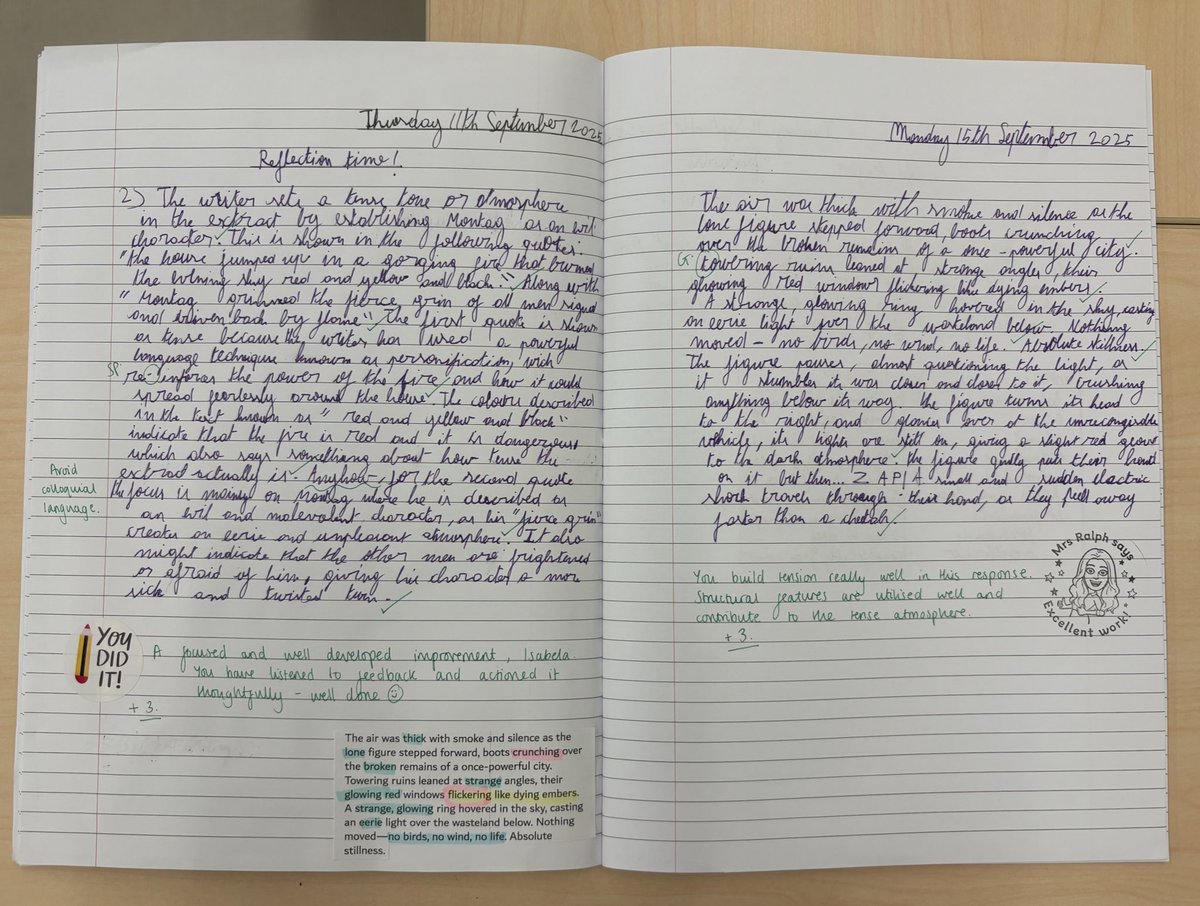 Thursday 11th September 2025
Reflection time!
2) The writer sets a tense tone or atmosphere
in the extract by establishing Montag as an evil
character. This is shown in the following quotes:
"the house jumped up in a gorging fire that burned
the evening sky red and yellow and black." Along with
"Montag grinned the fierce grin of all men singed
and driven back by flame" The first quote is shown
as tense because the writer has used a powerful
language technique known as personification, wich
SP
re-enforces the power of the fire and how it could
spread fearlessly around the house. The colours described
in the text known as "red and yellow and black"
indicate that the fire is red and it is dangerous
which also says something about how tense the
extract actually is. Anyhow, for the second quote
the focus is mainly on Montag where he is described as
an evil and malevolent character, as his "fierce grin"
creates an eerie and unpleasant atmosphere. It also
might indicate that the other men are frightened
or afraid of him, giving his character a more
sick and twisted turn.
Avoid
colloquial
language.
YOU
DID
IT!
A focused and well developed improvement, Isabela.
You have listened to feedback and actioned it
thoughtfully - well done
+3.
The air was thick with smoke and silence as the
lone figure stepped forward, boots crunching over
the broken remains of a once-powerful city.
Towering ruins leaned at strange angles, their
glowing red windows flickering like dying embers.
A strange, glowing ring hovered in the sky, casting
an eerie light over the wasteland below. Nothing
moved—no birds, no wind, no life. Absolute
stillness.
Monday 15th September 2025
The air was thick with smoke and silence as the
lone figure stepped forward, boots crunching
over the broken remains of a once-powerful city.
G.
towering ruins leaned at strange angles, their
glowing red windows flickering like dying embers.
A strange, glowing ring hovered in the sky, casting
an eerie light over the wasteland below. Nothing
moved - no birds, no wind, no life. Absolute stillness.
The figure pauses, almost questioning the light, as
it stumbles its was closer and closer to it, crushing
anything below its way. the figure turns its head
to the right, and glances over at the unrecongizable
vehicle, its lights are still on, giving a slight red glow
to the dark atmosphere. the figure gently puts their hand
on it but then... Z A P! A small and sudden electric
shock travels through their hand, as they pull away
faster than a cheetah.
You build tension really well in this response.
Structural features are utilised well and
contribute to the tense atmosphere.
+3.
Mrs Ralph says
Excellent work!